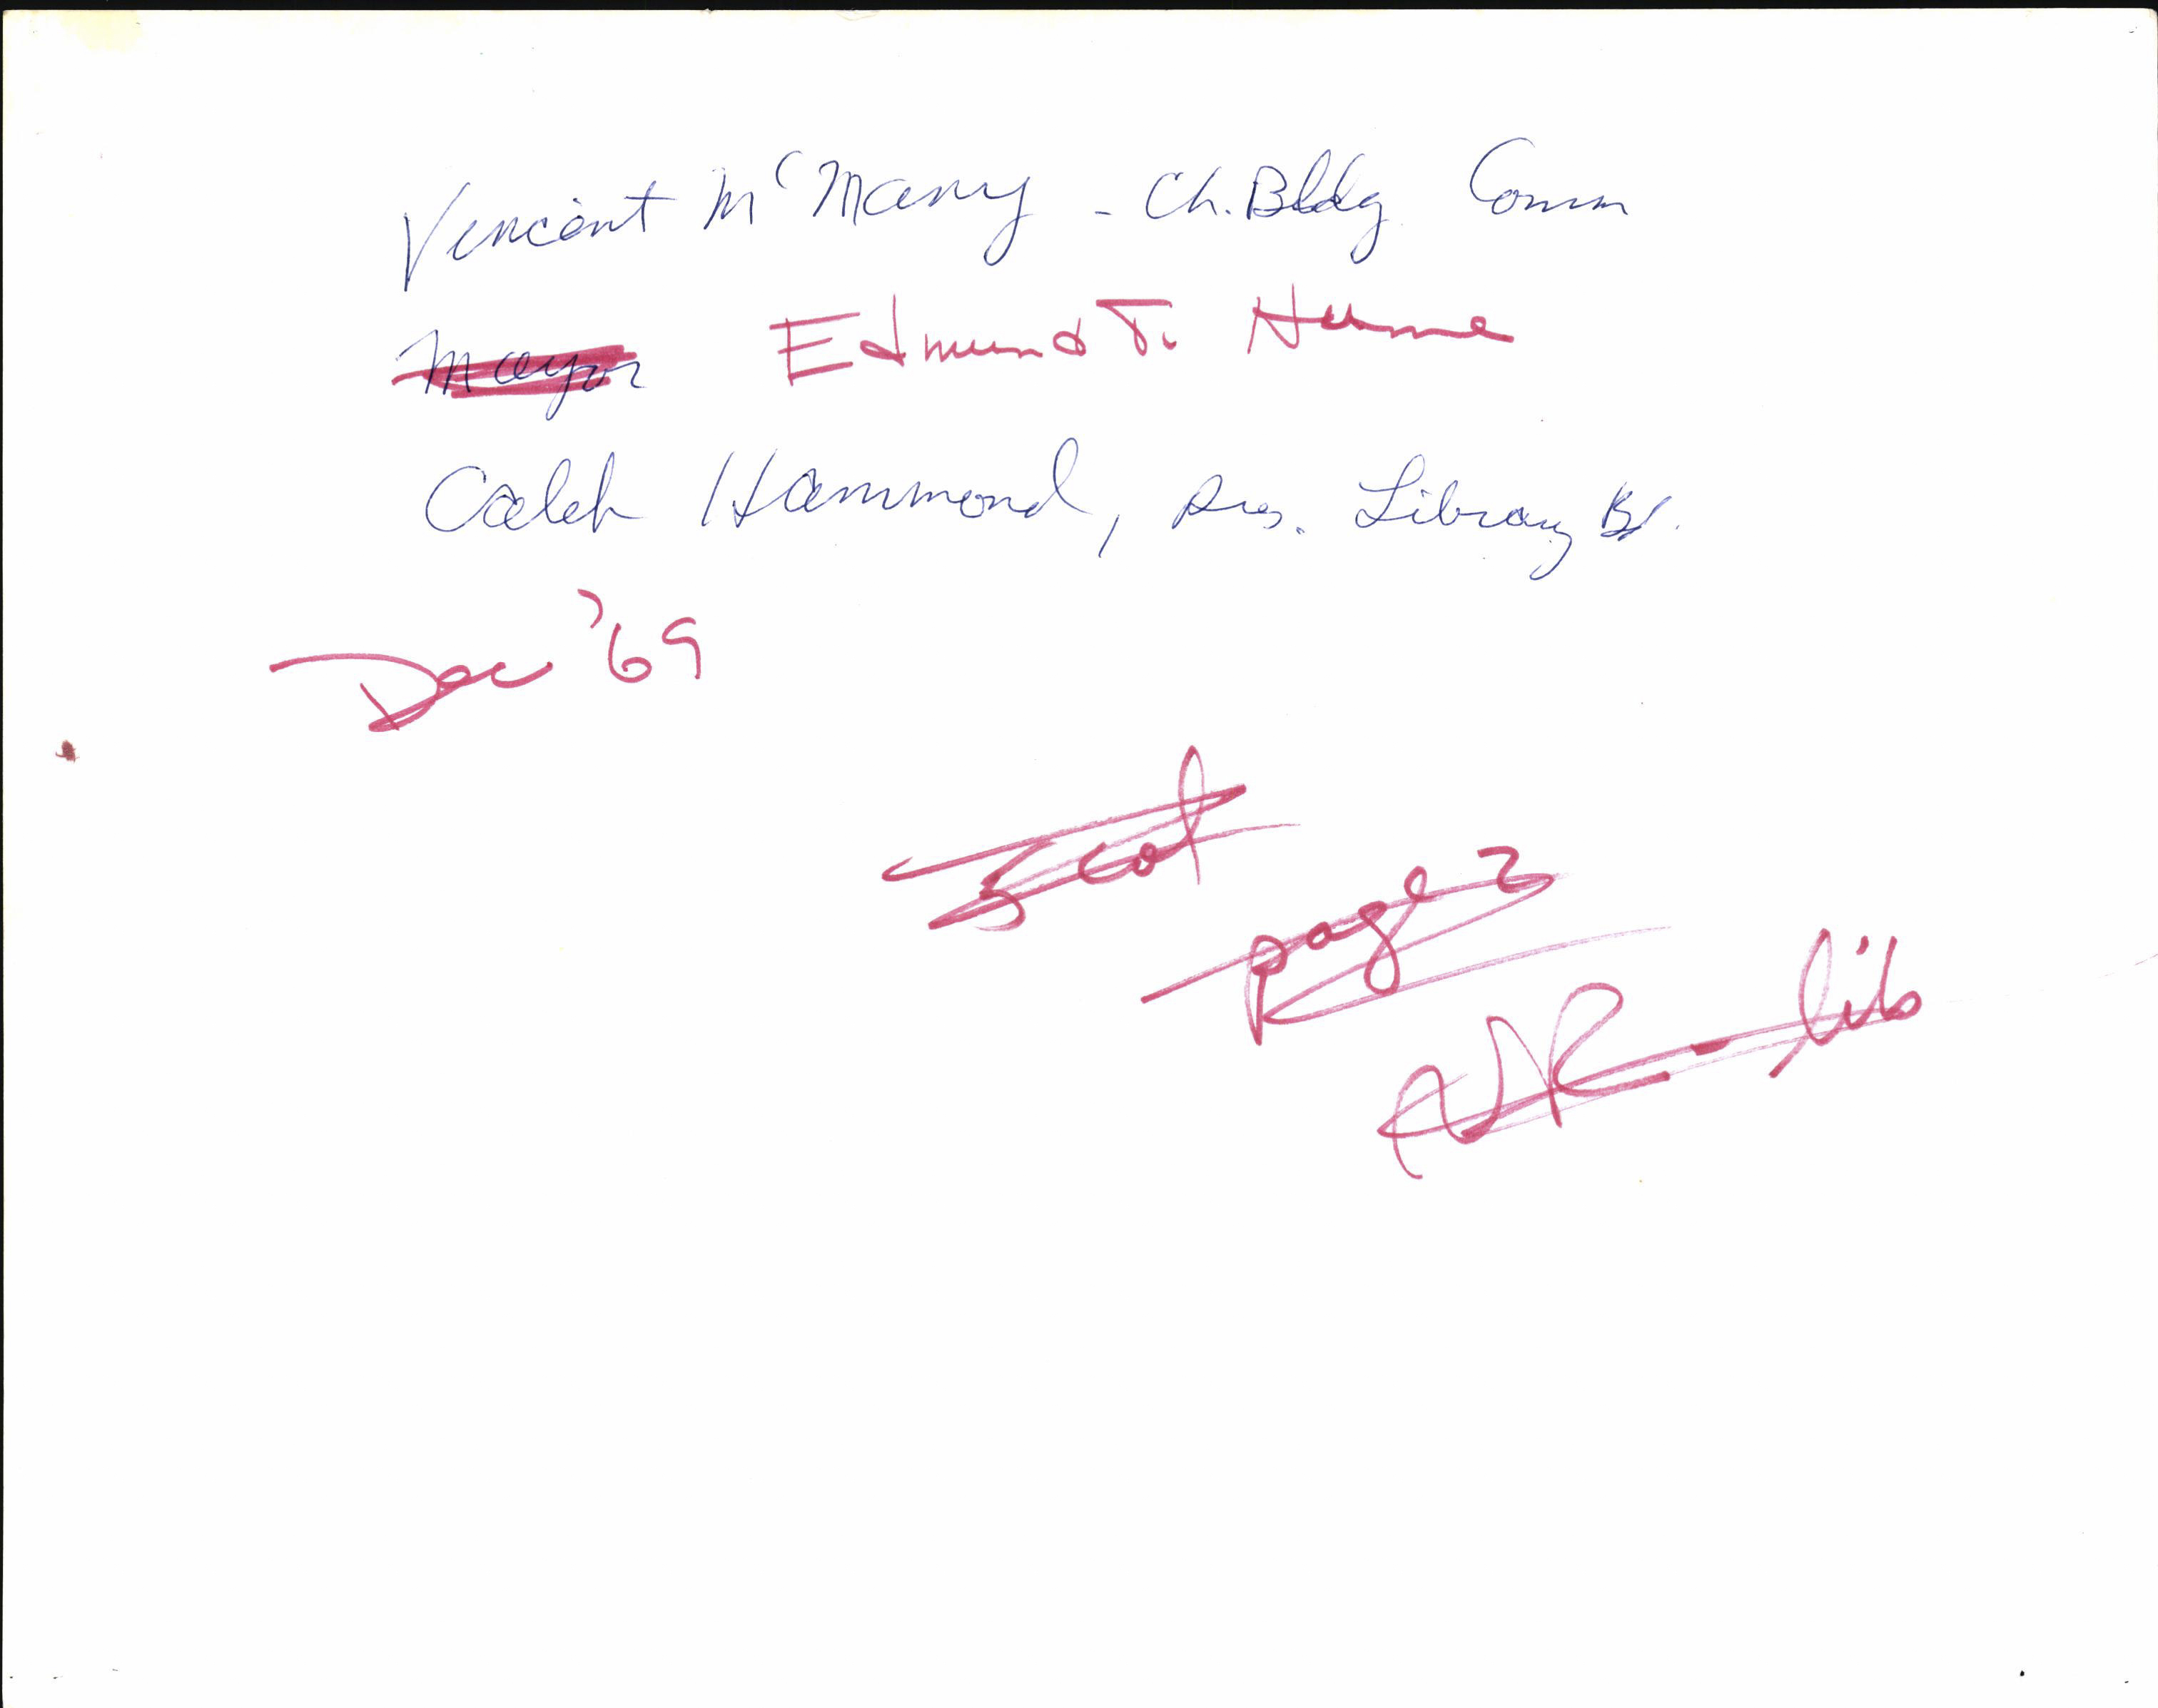 Vincent McMany - Ch. Bldg Comm
Mayor Edmund T. Hume
Caleb Hammond, Pres. Library Bd.
Dec '69
3 col
page 2
NR - lib